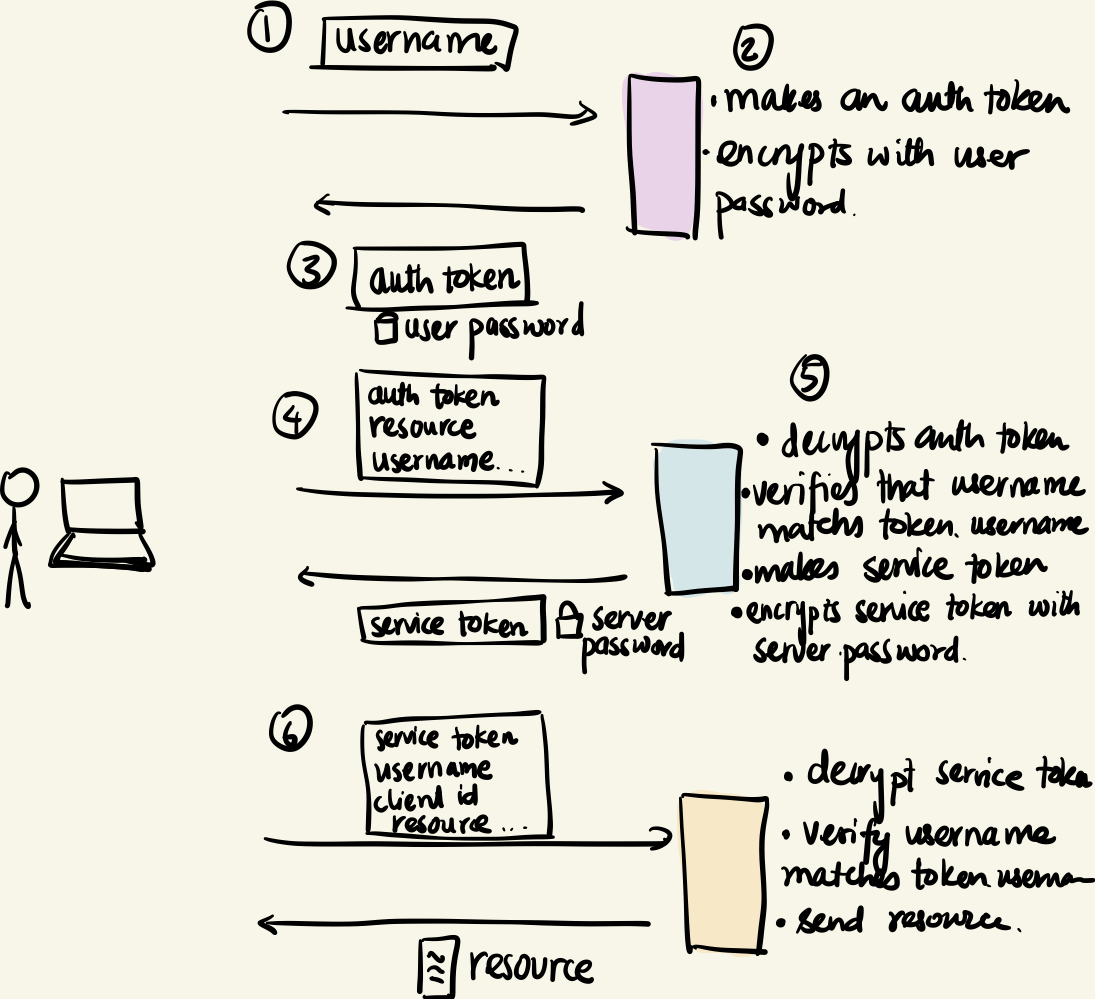 1
username
2
• makes an auth token
• encrypts with user
password.
3
auth token
user password
4
auth token
resource
username...
5
• decrypts auth token
• verifies that username
matchs token. username
• makes service token
• encrypts service token with
server password.
service token
server
password
6
service token
username
client id
resource ...
• decrypt service token
• verify username
matches token.userna
• send resource.
resource